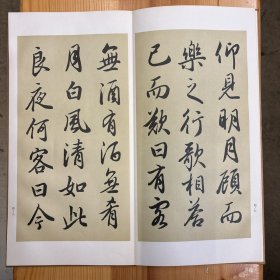 仰見明月顧而
樂之行歌相答
已而歎曰有客
無酒有酒無肴
月白風清如此
良夜何客曰今